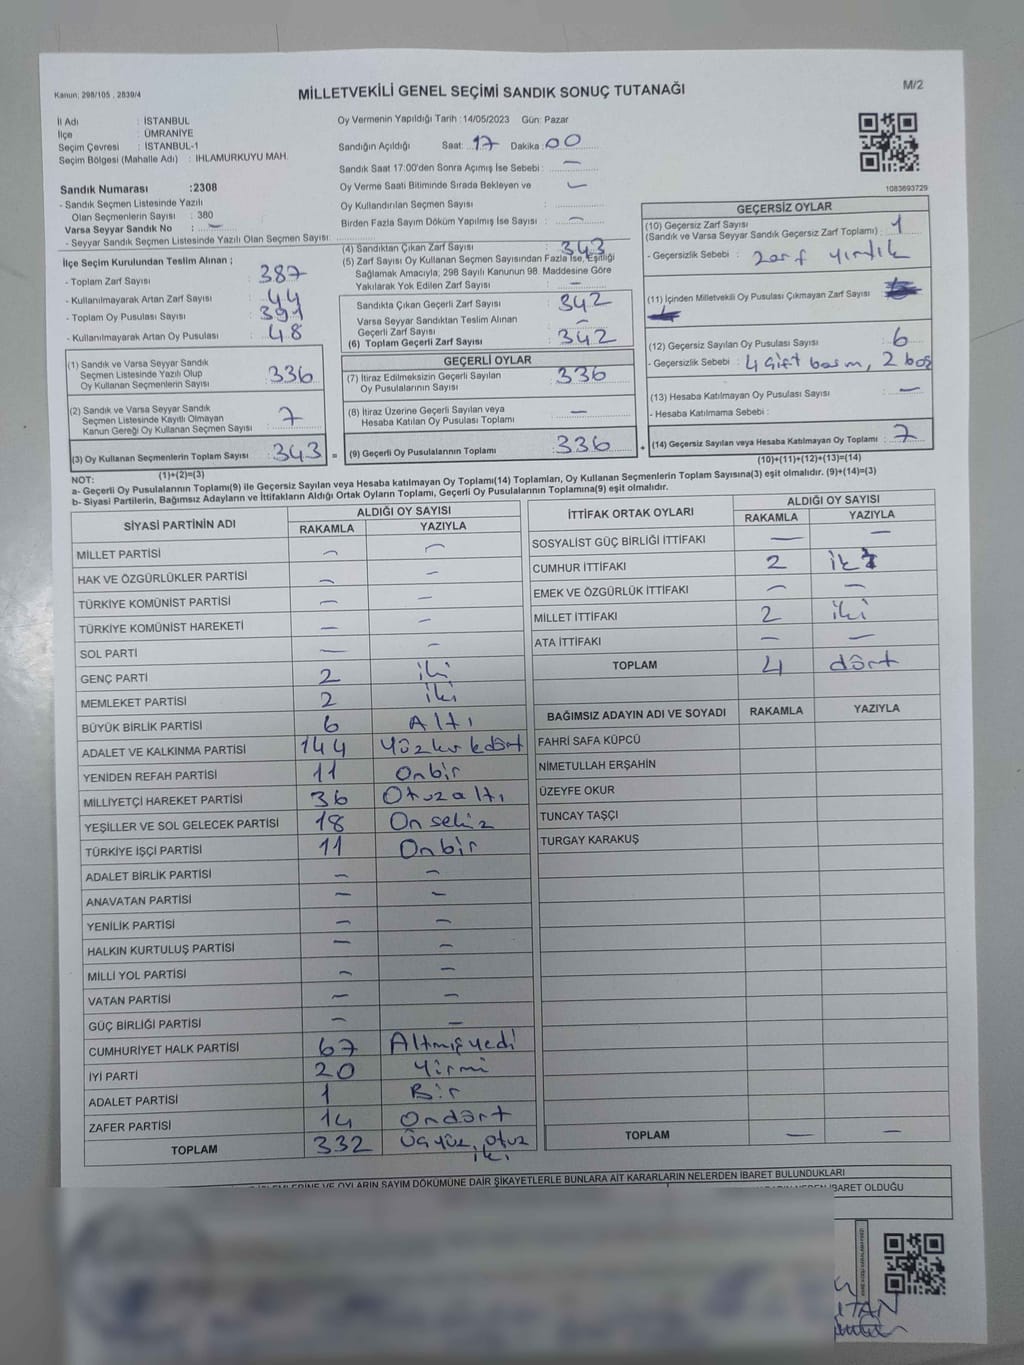 Kanun: 298/105 , 2839/4
MİLLETVEKİLİ GENEL SEÇİMİ SANDIK SONUÇ TUTANAĞI
M/2
İl Adı : İSTANBUL
İlçe : ÜMRANİYE
Seçim Çevresi : İSTANBUL-1
Seçim Bölgesi (Mahalle Adı) : IHLAMURKUYU MAH.
Sandık Numarası :2308
- Sandık Seçmen Listesinde Yazılı
Olan Seçmenlerin Sayısı : 380
Varsa Seyyar Sandık No : —
- Seyyar Sandık Seçmen Listesinde Yazılı Olan Seçmen Sayısı:
Oy Vermenin Yapıldığı Tarih : 14/05/2023 Gün: Pazar
Sandığın Açıldığı Saat: 17 Dakika: 00
Sandık Saat 17:00'den Sonra Açımış İse Sebebi : —
Oy Verme Saati Bitiminde Sırada Bekleyen ve —
Oy Kullandırılan Seçmen Sayısı :
Birden Fazla Sayım Döküm Yapılmış İse Sayısı : —
1083693729
İlçe Seçim Kurulundan Teslim Alınan ;
- Toplam Zarf Sayısı : 387
- Kullanılmayarak Artan Zarf Sayısı : 44
- Toplam Oy Pusulası Sayısı : 391
- Kullanılmayarak Artan Oy Pusulası : 48
(1) Sandık ve Varsa Seyyar Sandık
Seçmen Listesinde Yazılı Olup
Oy Kullanan Seçmenlerin Sayısı : 336
(2) Sandık ve Varsa Seyyar Sandık
Seçmen Listesinde Kayıtlı Olmayan
Kanun Gereği Oy Kullanan Seçmen Sayısı : 7
(3) Oy Kullanan Seçmenlerin Toplam Sayısı : 343
(1)+(2)=(3)
(4) Sandıktan Çıkan Zarf Sayısı : 343
(5) Zarf Sayısı Oy Kullanan Seçmen Sayısından Fazla İse, Eşitliği
Sağlamak Amacıyla; 298 Sayılı Kanunun 98. Maddesine Göre
Yakılarak Yok Edilen Zarf Sayısı : —
Sandıkta Çıkan Geçerli Zarf Sayısı : 342
Varsa Seyyar Sandıktan Teslim Alınan
Geçerli Zarf Sayısı : —
(6) Toplam Geçerli Zarf Sayısı : 342
GEÇERLİ OYLAR
(7) İtiraz Edilmeksizin Geçerli Sayılan
Oy Pusulalarının Sayısı : 336
(8) İtiraz Üzerine Geçerli Sayılan veya
Hesaba Katılan Oy Pusulası Toplamı : —
= (9) Geçerli Oy Pusulalarının Toplamı : 336
GEÇERSİZ OYLAR
(10) Geçersiz Zarf Sayısı
(Sandık ve Varsa Seyyar Sandık Geçersiz Zarf Toplamı) : 1
- Geçersizlik Sebebi : zarf yırtık
(11) İçinden Milletvekili Oy Pusulası Çıkmayan Zarf Sayısı
(12) Geçersiz Sayılan Oy Pusulası Sayısı : 6
- Geçersizlik Sebebi : 4 çift basım, 2 boş
(13) Hesaba Katılmayan Oy Pusulası Sayısı : —
- Hesaba Katılmama Sebebi :
+ (14) Geçersiz Sayılan veya Hesaba Katılmayan Oy Toplamı : 7
(10)+(11)+(12)+(13)=(14)
NOT:
a- Geçerli Oy Pusulalarının Toplamı(9) ile Geçersiz Sayılan veya Hesaba katılmayan Oy Toplamı(14) Toplamları, Oy Kullanan Seçmenlerin Toplam Sayısına(3) eşit olmalıdır. (9)+(14)=(3)
b- Siyasi Partilerin, Bağımsız Adayların ve İttifakların Aldığı Ortak Oyların Toplamı, Geçerli Oy Pusulalarının Toplamına(9) eşit olmalıdır.
SİYASİ PARTİNİN ADI ALDIĞI OY SAYISI
RAKAMLA YAZIYLA
MİLLET PARTİSİ — —
HAK VE ÖZGÜRLÜKLER PARTİSİ — —
TÜRKİYE KOMÜNİST PARTİSİ — —
TÜRKİYE KOMÜNİST HAREKETİ — —
SOL PARTİ — —
GENÇ PARTİ 2 iki
MEMLEKET PARTİSİ 2 iki
BÜYÜK BİRLİK PARTİSİ 6 Altı
ADALET VE KALKINMA PARTİSİ 144 Yüzkırkdört
YENİDEN REFAH PARTİSİ 11 Onbir
MİLLİYETÇİ HAREKET PARTİSİ 36 Otuzaltı
YEŞİLLER VE SOL GELECEK PARTİSİ 18 Onsekiz
TÜRKİYE İŞÇİ PARTİSİ 11 Onbir
ADALET BİRLİK PARTİSİ — —
ANAVATAN PARTİSİ — —
YENİLİK PARTİSİ — —
HALKIN KURTULUŞ PARTİSİ — —
MİLLİ YOL PARTİSİ — —
VATAN PARTİSİ — —
GÜÇ BİRLİĞİ PARTİSİ — —
CUMHURİYET HALK PARTİSİ 67 Altmışyedi
İYİ PARTİ 20 Yirmi
ADALET PARTİSİ 1 Bir
ZAFER PARTİSİ 14 Ondört
TOPLAM 332 Üçyüz, otuz
iki
İTTİFAK ORTAK OYLARI ALDIĞI OY SAYISI
RAKAMLA YAZIYLA
SOSYALİST GÜÇ BİRLİĞİ İTTİFAKI — —
CUMHUR İTTİFAKI 2 iki
EMEK VE ÖZGÜRLÜK İTTİFAKI — —
MİLLET İTTİFAKI 2 iki
ATA İTTİFAKI — —
TOPLAM 4 dört
BAĞIMSIZ ADAYIN ADI VE SOYADI RAKAMLA YAZIYLA
FAHRİ SAFA KÜPCÜ
NİMETULLAH ERŞAHİN
ÜZEYFE OKUR
TUNCAY TAŞÇI
TURGAY KARAKUŞ
TOPLAM — —
İŞLEMLERİNE VE OYLARIN SAYIM DÖKÜMÜNE DAİR ŞİKAYETLERLE BUNLARA AİT KARARLARIN NELERDEN İBARET BULUNDUKLARI
İBARET OLDUĞU